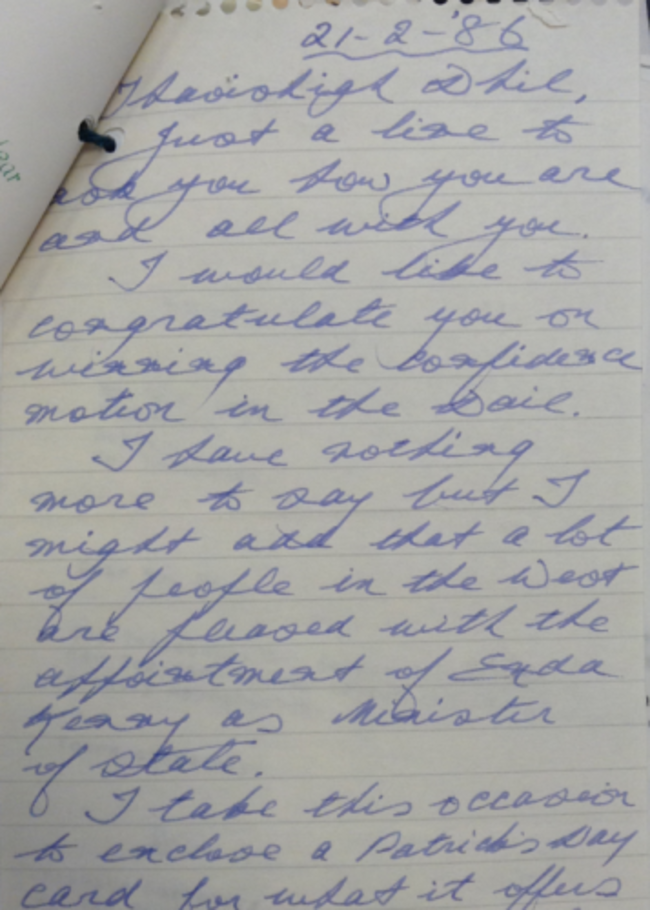 21-2-'86
A Thaoisigh Dhil,
Just a line to
ask you how you are
and all with you.
I would like to
congratulate you on
winning the confidence
motion in the Dail.
I have nothing
more to say but I
might add that a lot
of people in the West
are pleased with the
appointment of Enda
Kenny as Minister
of State.
I take this occasion
to enclose a Patrick's Day
card for what it offers